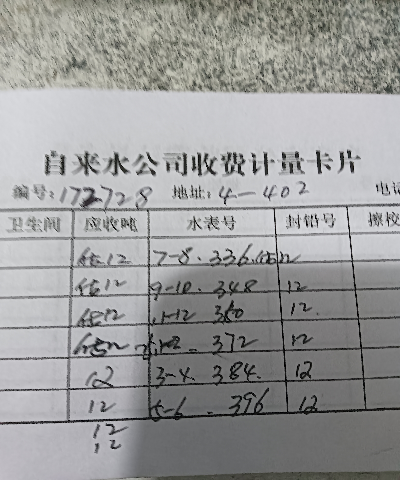 自来水公司收费计量卡片
编号:172728 地址:4-402 电话
卫生间 应收吨 水表号 封铅号 擦校
估12 7-8. 336. 12
估12 9-10. 348 12
估12 11-12 360 12.
估12 1-2 372 12
12 3-4. 384. 12
12 5-6. 396 12
12
12